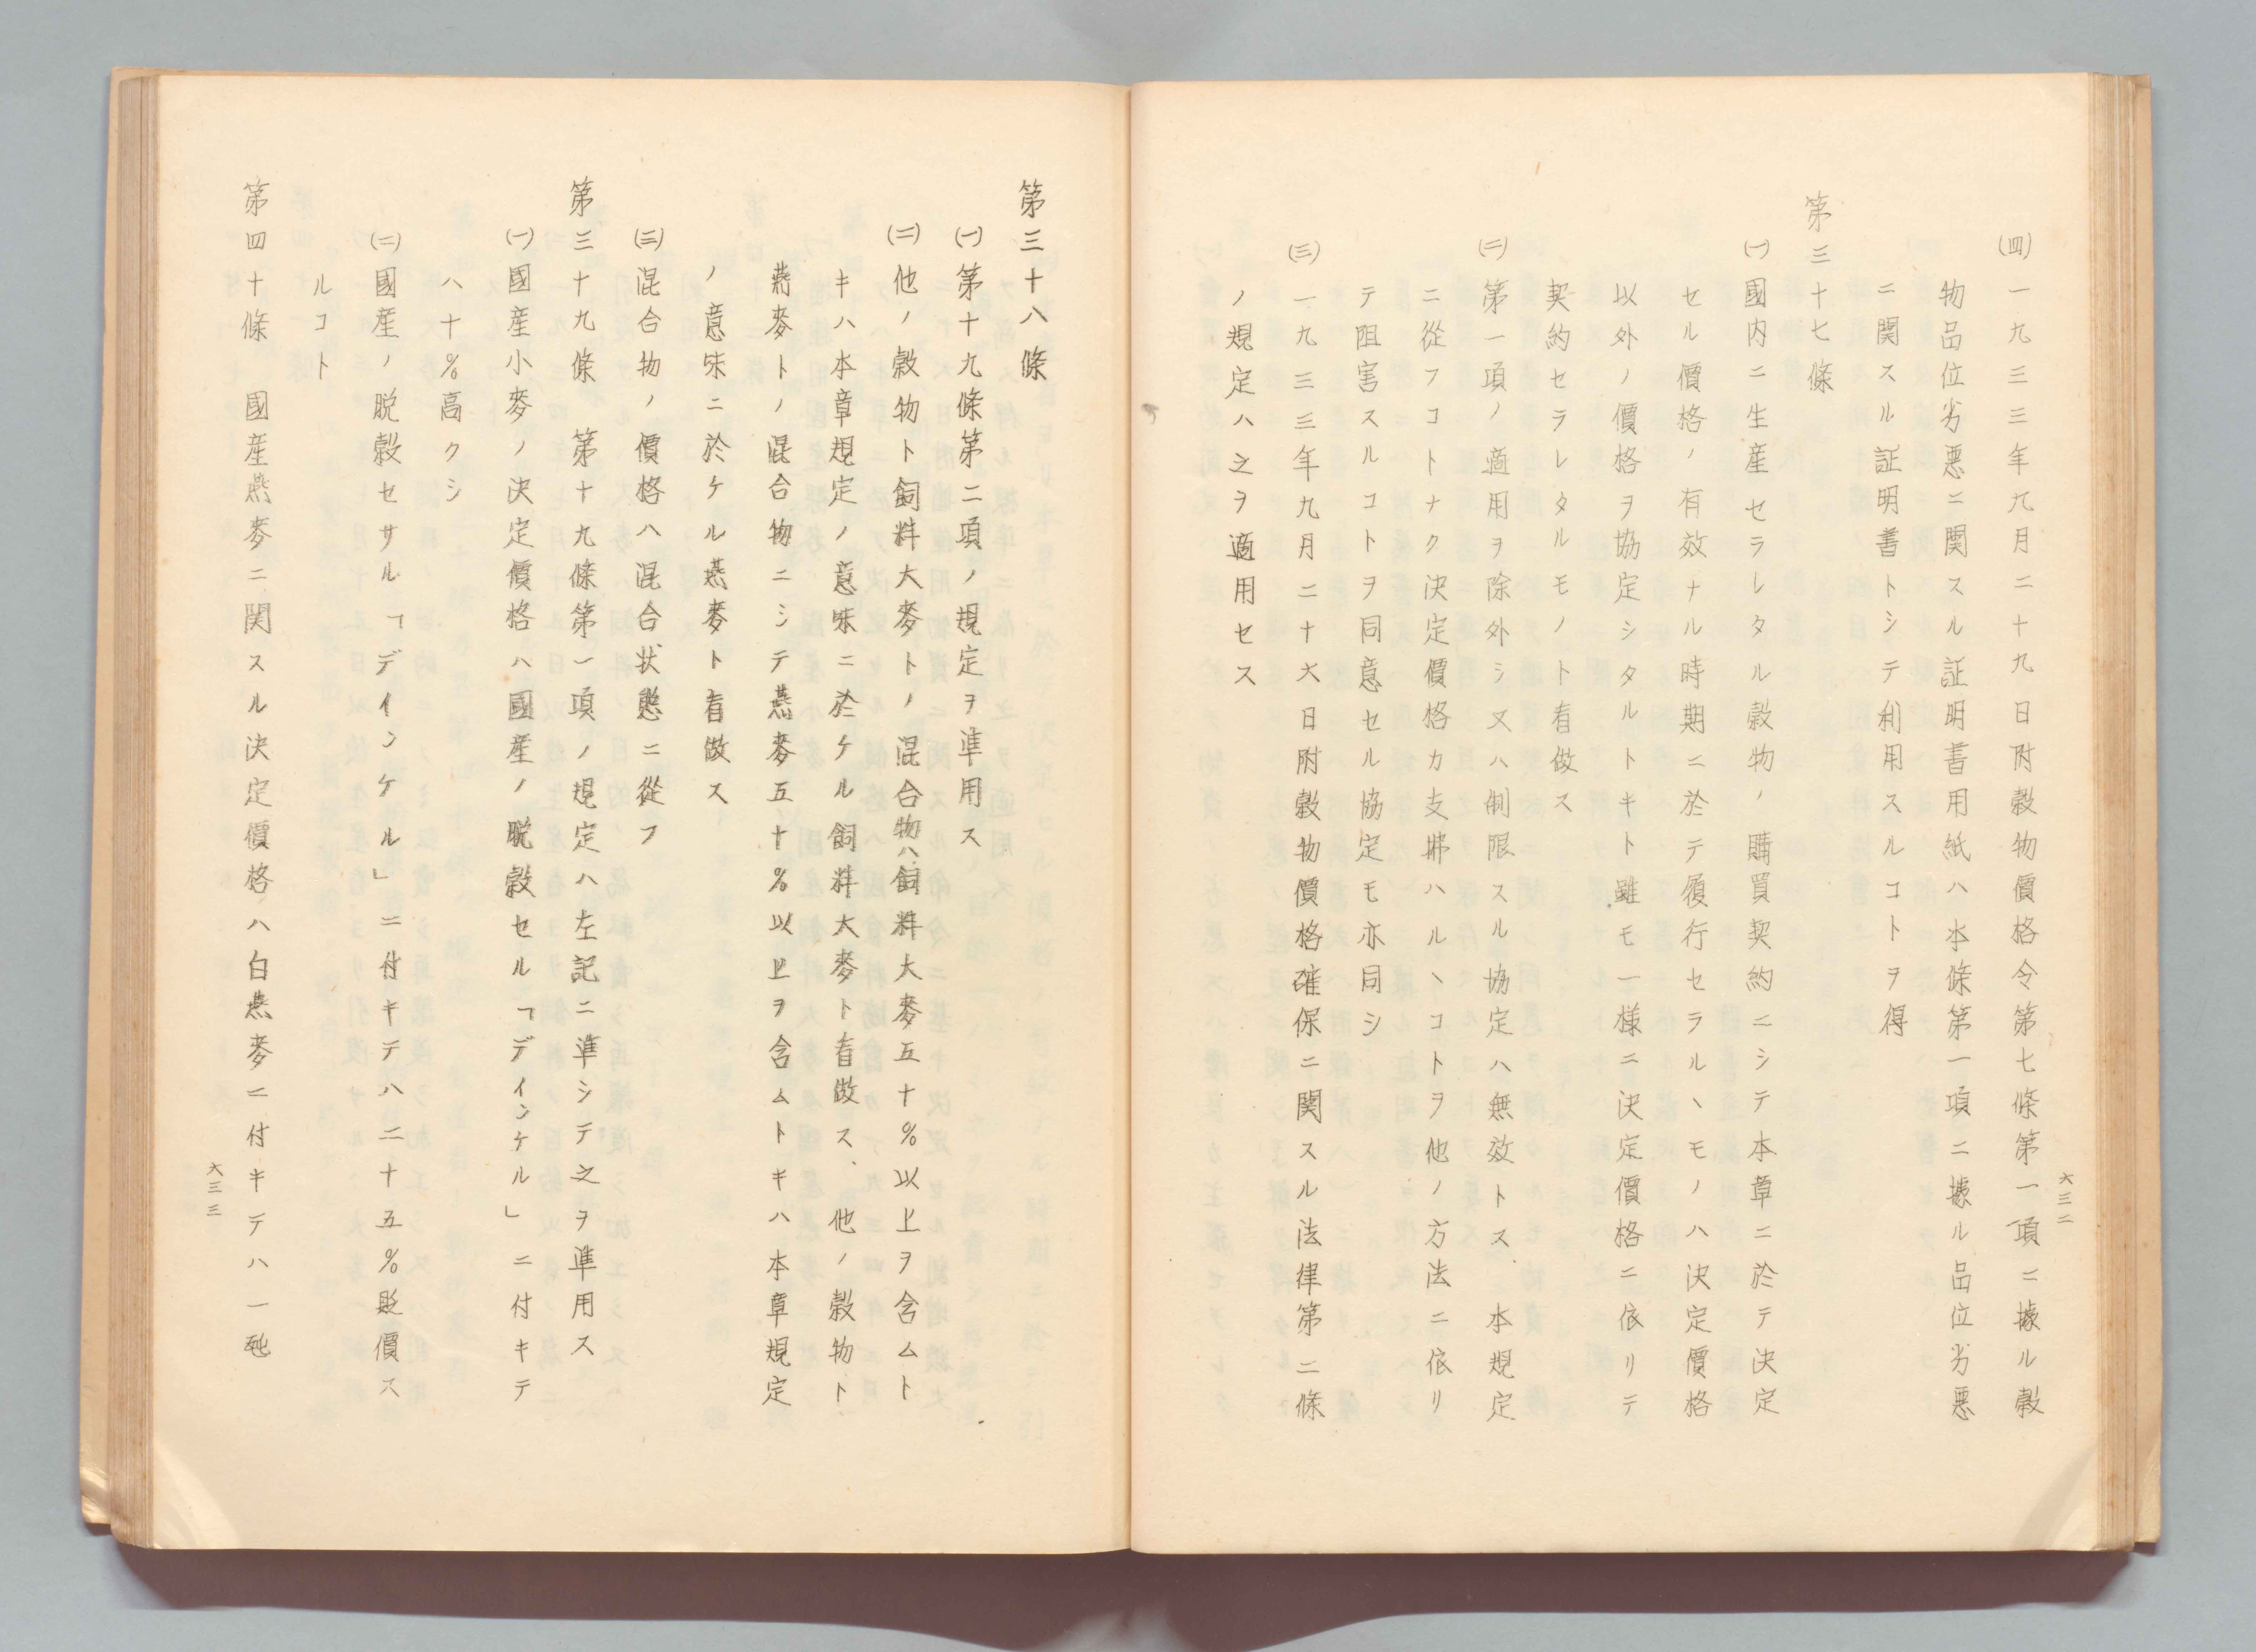 (四)一九三三年九月二十九日附穀物價格令第七條第一項ニ據ル穀
物品位劣惡ニ関スル証明書用紙ハ本條第一項ニ據ル品位劣惡
ニ関スル証明書トシテ利用スルコトヲ得
第三十七條
(一)國内ニ生産セラレタル穀物ノ購買契約ニシテ本章ニ於テ決定
セル價格ノ有效ナル時期ニ於テ履行セラルヽモノハ決定價格
以外ノ價格ヲ協定シタルトキト雖モ一様ニ決定價格ニ依リテ
契約セラレタルモノト看做ス
(二)第一項ノ適用ヲ除外シ又ハ制限スル協定ハ無效トス、本規定
ニ從フコトナク決定價格カ支拂ハルヽコトヲ他ノ方法ニ依リ
テ阻害スルコトヲ同意セル協定モ亦同シ
(三)一九三三年九月二十六日附穀物價格確保ニ関スル法律第二條
ノ規定ハ之ヲ適用セス
六三二
第三十八條
(一)第十九條第二項ノ規定ヲ準用ス
(二)他ノ穀物ト飼料大麥トノ混合物ハ飼料大麥五十%以上ヲ含ムト
キハ本章規定ノ意味ニ於ケル飼料大麥ト看做ス、他ノ穀物ト
燕麥トノ混合物ニシテ燕麥五十%以上ヲ含ムトキハ本章規定
ノ意味ニ於ケル燕麥ト看做ス
(三)混合物ノ價格ハ混合状態ニ從フ
第三十九條　第十九條第一項ノ規定ハ左記ニ準シテ之ヲ準用ス
(一)國産小麥ノ決定價格ハ國産ノ脱穀セル「デインケル」ニ付キテ
ハ十%高クシ
(二)國産ノ脱穀セサル「デインケル」ニ付キテハ二十五%貶價ス
ルコト
第四十條　國産燕麥ニ関スル決定價格ハ白燕麥ニ付キテハ一瓲
六三三